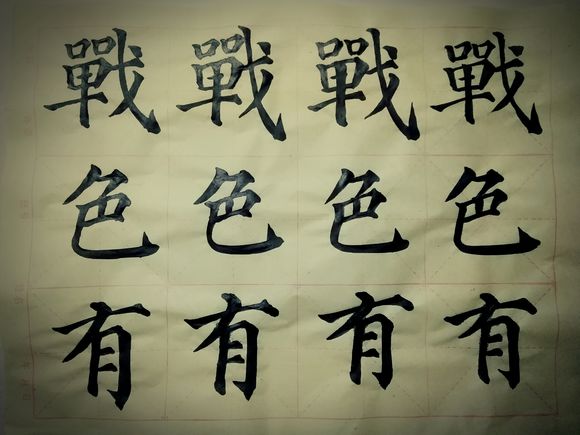 戰戰戰戰
色色色色
有有有有